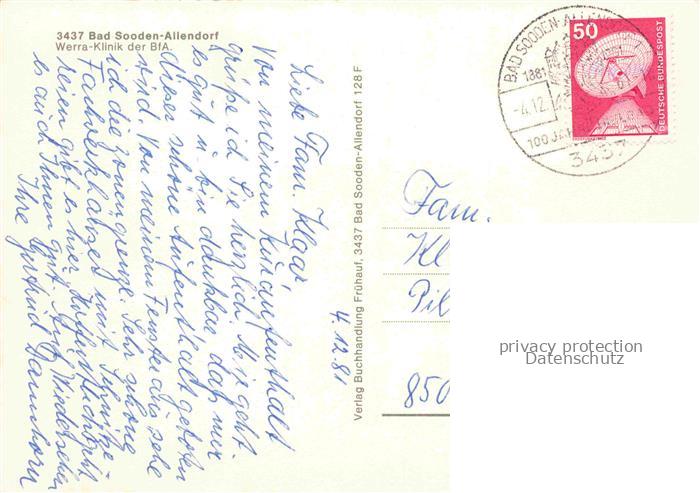 3437 Bad Sooden-Allendorf
Werra-Klinik der BfA.
Liebe Fam. Klaar,
Von meinem Kuraufenthalt
grüße ich Sie herzlich. Mir geht
es gut u. bin dankbar daß mir
dieser schöne Aufenthalt geboten
wird. Von meinem Fenster aus sehe
ich die Zonengrenze. Sehr schöne
Fachwerkhäuser mit Schnitze-
reien gibt es hier. Hoffentlich geht
es auch Ihnen gut. Auf Wiedersehen
Ihre Gertrud
4.12.81
Verlag Buchhandlung Frühauf, 3437 Bad Sooden-Allendorf 128 F
BAD SOODEN-ALLENDORF
1881
-4.12.
100 JAHRE
3437
50
DEUTSCHE BUNDESPOST
Fam.
Kl
Pil
850
privacy protection
Datenschutz